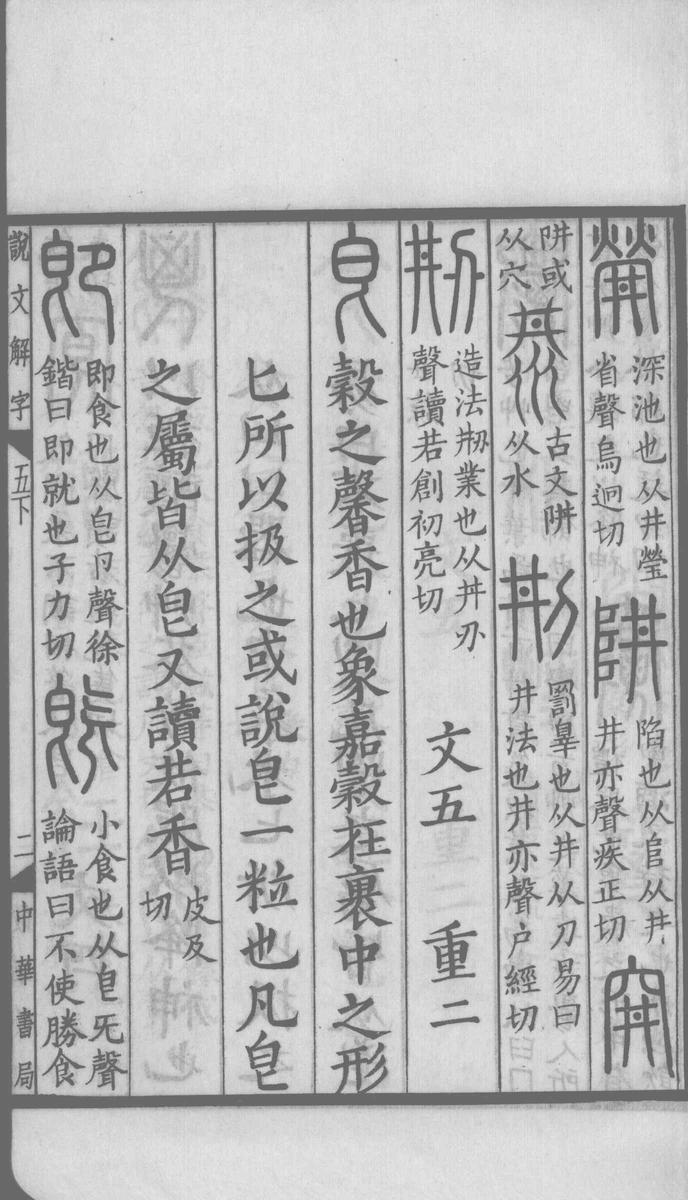 深池也从井瑩
省聲烏迥切
阱
陷也从𨸏从井
井亦聲疾正切
穽
阱或
从穴
汬
古文阱
从水
㓝
罰辠也从井从刀易曰
井法也井亦聲户經切
刱
造法刱業也从井刅
聲讀若創初亮切
文五 重二
皀 穀之馨香也象嘉穀在裹中之形
匕所以扱之或說皀一粒也凡皀
之屬皆从皀又讀若香
皮及
切
卽
即食也从皀卪聲徐
鍇曰即就也子力切
旣
小食也从皀旡聲
論語曰不使勝食
說文解字 五下 二 中華書局